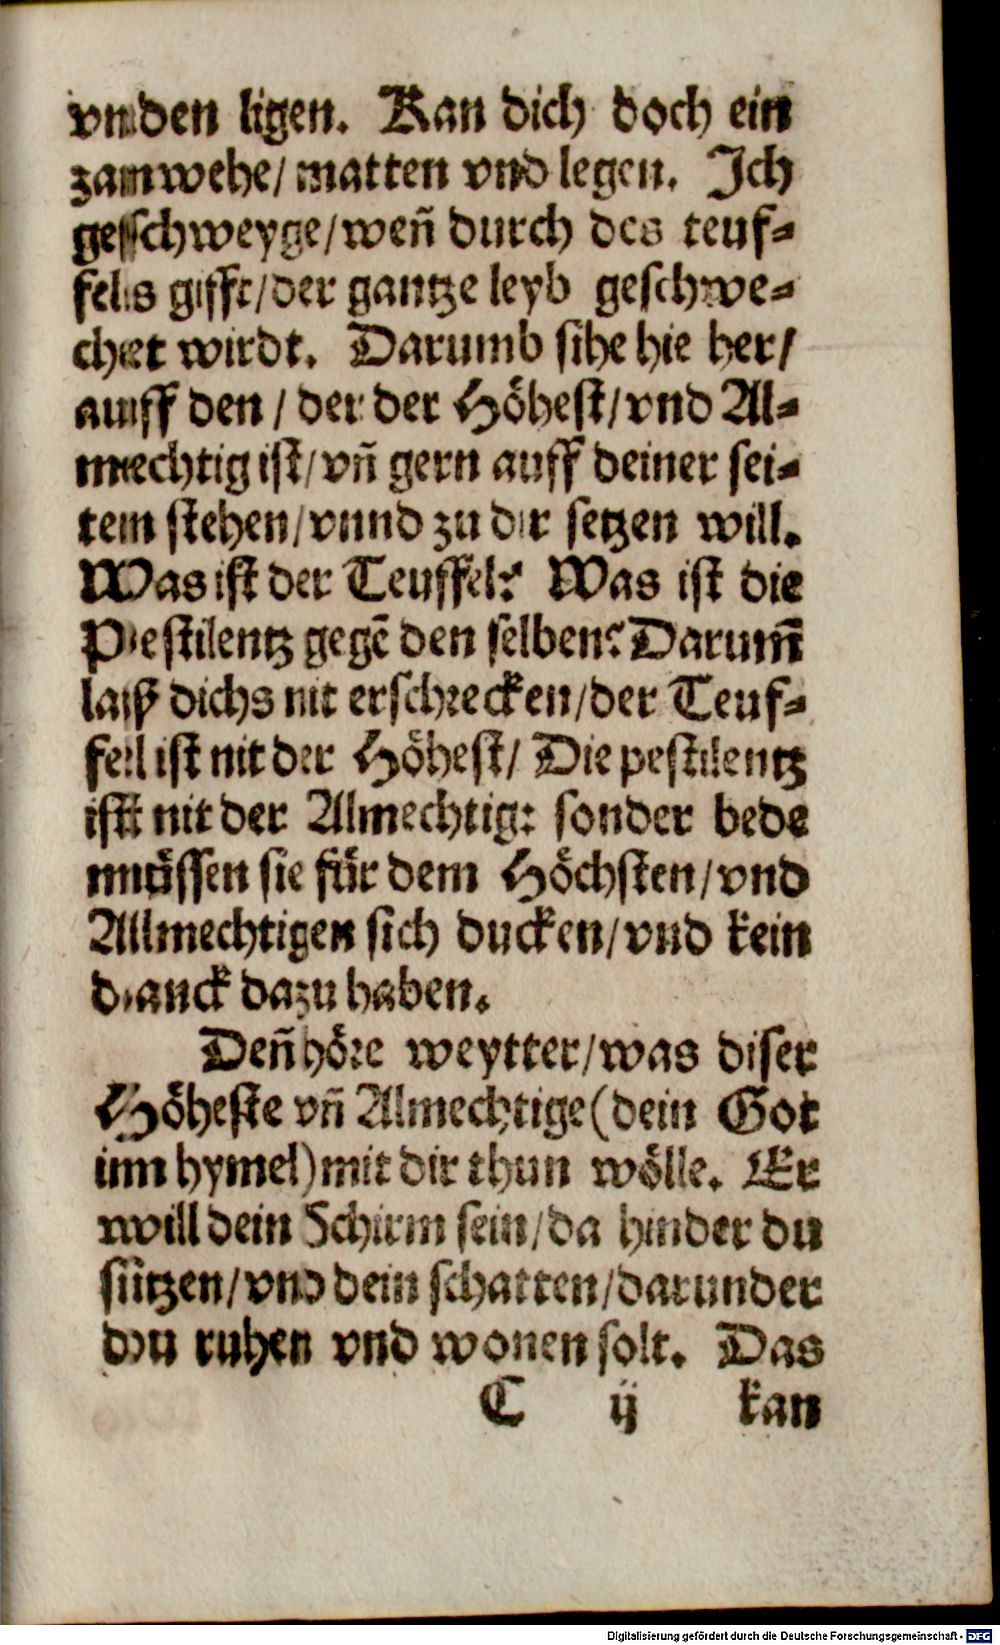 vnden ligen. Kan dich doch ein
zanwehe/ matten vnd legen. Ich
geschweyge/ weñ durch des teuf⸗
fels gifft/ der gantze leyb geschwe⸗
chet wirdt. Darumb sihe hie her/
auff den / der der Höhest/ vnd Al⸗
mechtig ist/ vñ gern auff deiner sei⸗
ten stehen/ vnnd zu dir setzen will.
Was ist der Teuffel? Was ist die
Pestilentz gegē den selben? Darum̄
laß dichs nit erschrecken/ der Teuf⸗
fel ist nit der Höhest/ Die pestilentz
ist nit der Almechtig: sonder bede
müssen sie für dem Höchsten/ vnd
Allmechtigen sich ducken/ vnd kein
danck dazu haben.
Deñ höre weytter/ was diser
Höheste vñ Almechtige (dein Got
im hymel) mit dir thun wölle. Er
will dein Schirm sein/ da hinder du
sitzen/ vnd dein schatten/ darunder
du ruhen vnd wonen solt. Das
C ij kan
Digitalisierung gefördert durch die Deutsche Forschungsgemeinschaft - DFG